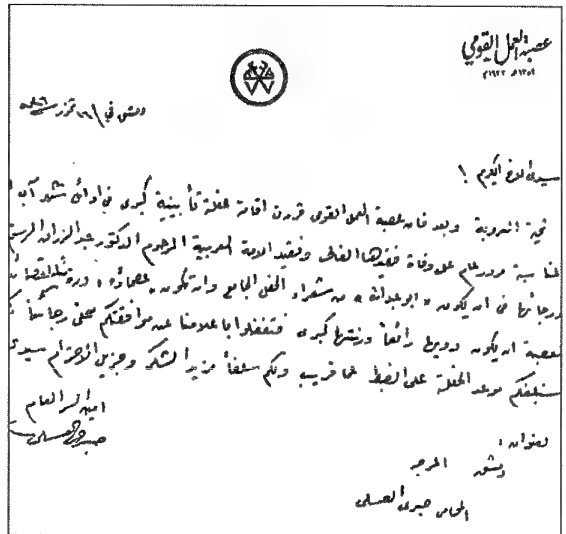 عصبة العمل القومي
١٣٥١هـ ١٩٣٣م
دمشق في ١٦ تموز سنة
سيدي الاخ الكريم !
تحية العروبة وبعد فان عصبة العمل القومي قررت اقامة حفلة تأبينية كبرى في اوائل شهر آب
لمناسبة مرور عام على وفاة فقيدها الغالي وفقيد الامة العربية المرحوم الدكتور عبد الرزاق
ورجاؤنا في ان يكون « ابو عبدالله » من شعراء الحفل الجامع وان تكون
العصبة ان يكون دويها رائعاً ورنتها كبرى فتفضلوا باعلامنا عن موافقتكم
سنبلغكم موعد الحفلة على الضبط عما قريب ولكم سلفاً مزيد الشكر وجزيل الاحترام سيدي
امين السر العام
صبري العسلي
العنوان :
دمشق المرجه
المحامي صبري العسلي